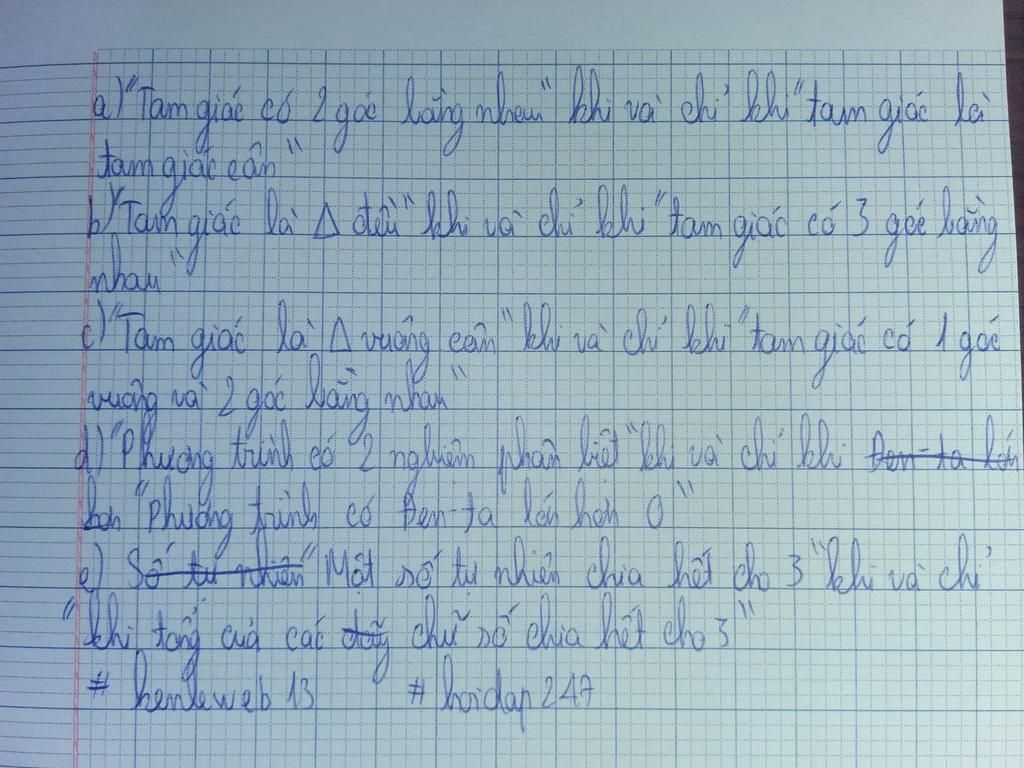 a) "Tam giác có 2 góc bằng nhau" khi và chỉ khi "tam giác là
tam giác cân"
b) "Tam giác là Δ đều" khi và chỉ khi "tam giác có 3 góc bằng
nhau"
c) "Tam giác là Δ vuông cân" khi và chỉ khi "tam giác có 1 góc
vuông và 2 góc bằng nhau"
d) "Phương trình có 2 nghiệm phân biệt" khi và chỉ khi Đen-ta lớn
hơn "Phương trình có Đen-ta lớn hơn 0"
e) Số tự nhiên "Một số tự nhiên chia hết cho 3" khi và chỉ
"khi tổng của các chữ số chia hết cho 3"
# henleweb 13 # hoidap 247